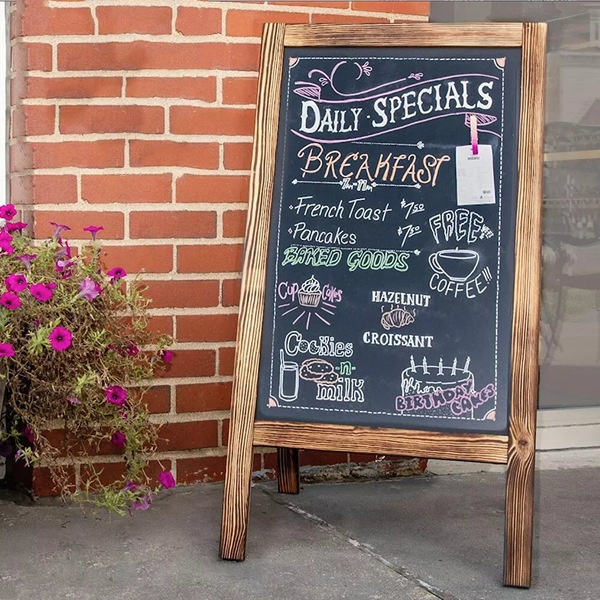 DAILY · SPECIALS
BREAKFAST
7AM-11AM
French Toast $7.50
Pancakes $7.50
BAKED GOODS
FREE
COFFEE!!
Cup cakes
HAZELNUT
CROISSANT
Cookies
-n-
milk
BIRTHDAY
CAKES